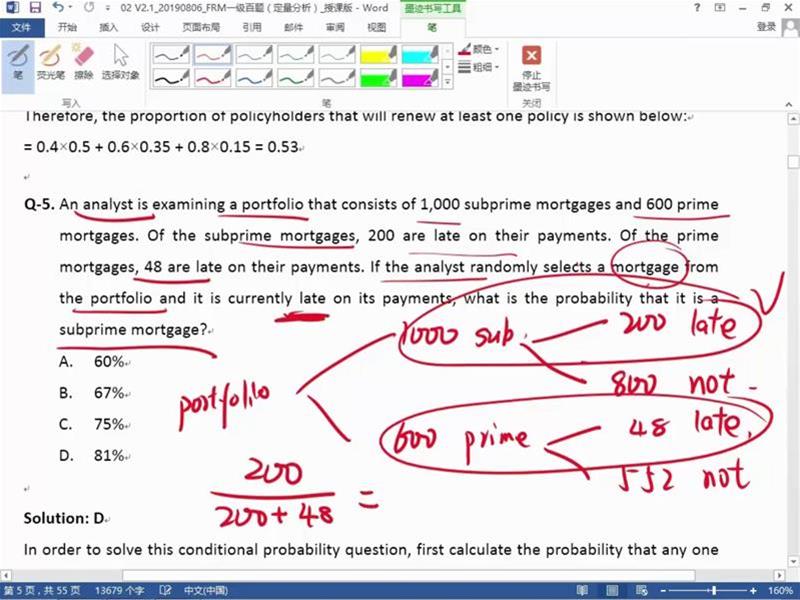 02 V2.1_20190806_FRM一级百题（定量分析）_授课版 - Word
墨迹书写工具
文件 开始 插入 设计 页面布局 引用 邮件 审阅 视图 笔
登录
笔 荧光笔 擦除 选择对象
颜色
粗细
停止
墨迹书写
写入 笔 关闭
Therefore, the proportion of policyholders that will renew at least one policy is shown below:
= 0.4×0.5 + 0.6×0.35 + 0.8×0.15 = 0.53
Q-5. An analyst is examining a portfolio that consists of 1,000 subprime mortgages and 600 prime
mortgages. Of the subprime mortgages, 200 are late on their payments. Of the prime
mortgages, 48 are late on their payments. If the analyst randomly selects a mortgage from
the portfolio and it is currently late on its payments, what is the probability that it is a
subprime mortgage?
A. 60%
B. 67%
C. 75%
D. 81%
portfolio
1000 sub. 200 late
800 not
600 prime 48 late.
552 not
200
200+48 =
Solution: D
In order to solve this conditional probability question, first calculate the probability that any one
第 5 页，共 55 页 13679 个字 中文(中国) 160%